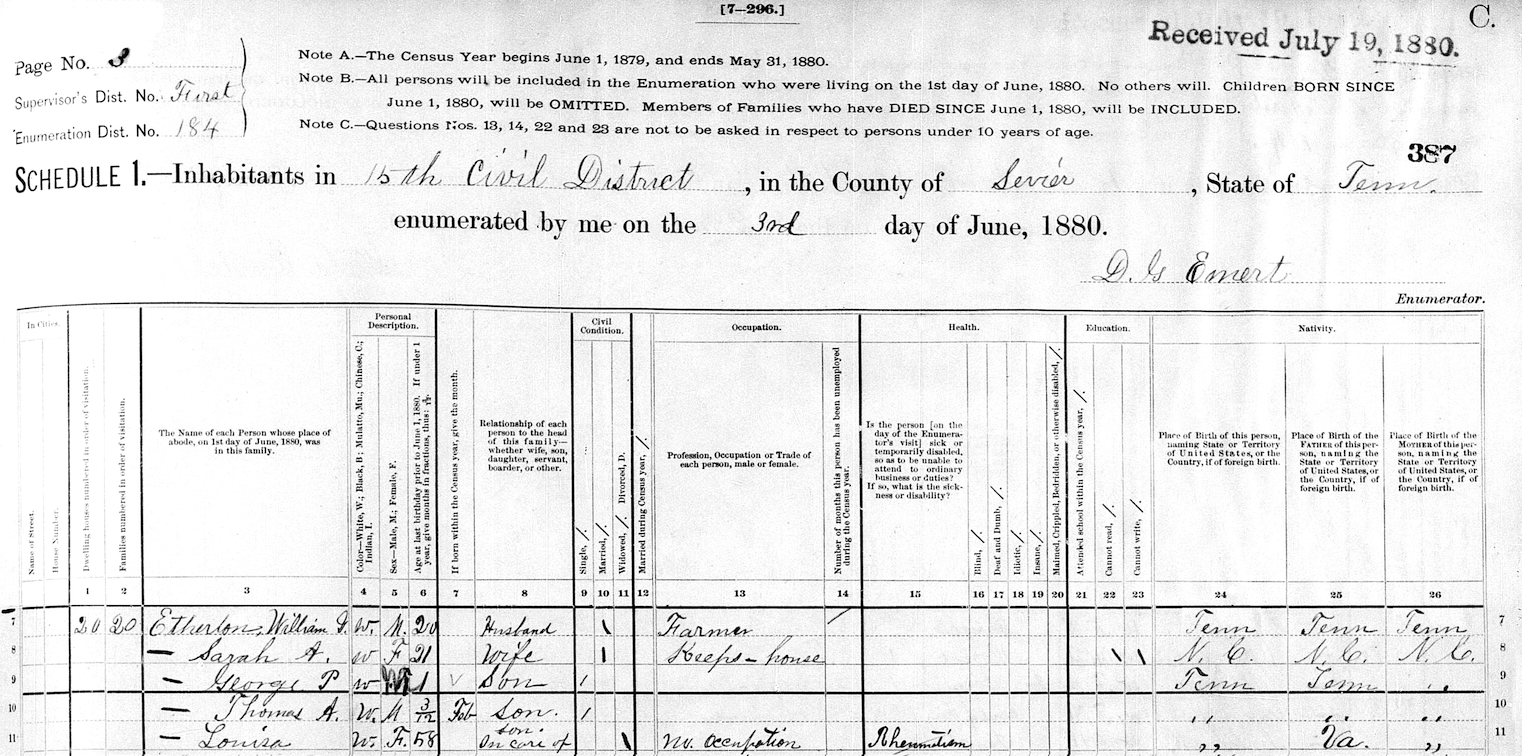 [7—296.]
C.
Received July 19, 1880.
Page No. 3
Supervisor's Dist. No. First
Enumeration Dist. No. 184
Note A.—The Census Year begins June 1, 1879, and ends May 31, 1880.
Note B.—All persons will be included in the Enumeration who were living on the 1st day of June, 1880. No others will. Children BORN SINCE
June 1, 1880, will be OMITTED. Members of Families who have DIED SINCE June 1, 1880, will be INCLUDED.
Note C.—Questions Nos. 13, 14, 22 and 23 are not to be asked in respect to persons under 10 years of age.
387
SCHEDULE 1.—Inhabitants in 15th Civil District, in the County of Sevier, State of Tenn.
enumerated by me on the 3rd day of June, 1880.
D. G Emert
Enumerator.
In Cities.
Name of Street.
House Number.
Dwelling houses numbered in order of visitation.
Families numbered in order of visitation.
The Name of each Person whose place of
abode, on 1st day of June, 1880, was
in this family.
Personal
Description.
Color—White, W.; Black, B.; Mulatto, Mu.; Chinese, C.;
Indian, I.
Sex—Male, M.; Female, F.
Age at last birthday prior to June 1, 1880. If under 1
year, give months in fractions, thus: 3/12
If born within the Census year, give the month.
Relationship of each
person to the head
of this family—
whether wife, son,
daughter, servant,
boarder, or other.
Civil
Condition.
Single, /.
Married, /.
Widowed, /. Divorced, D.
Married during Census year, /.
Occupation.
Profession, Occupation or Trade of
each person, male or female.
Number of months this person has been unemployed
during the Census year.
Health.
Is the person [on the
day of the Enumera-
tor's visit] sick or
temporarily disabled,
so as to be unable to
attend to ordinary
business or duties?
If so, what is the sick-
ness or disability?
Blind, /.
Deaf and Dumb, /.
Idiotic, /.
Insane, /.
Maimed, Crippled, Bedridden, or otherwise disabled, /.
Education.
Attended school within the Census year, /.
Cannot read, /.
Cannot write, /.
Nativity.
Place of Birth of this person,
naming State or Territory
of United States, or
the Country, if of foreign birth.
Place of Birth of the
FATHER of this per-
son, naming the
State or Territory
of United States, or
the Country, if of
foreign birth.
Place of Birth of the
MOTHER of this per-
son, naming the
State or Territory
of United States, or
the Country, if of
foreign birth.
1 2 3 4 5 6 7 8 9 10 11 12 13 14 15 16 17 18 19 20 21 22 23 24 25 26
7 20 20 Etherton, William G. W. M. 20 Husband \ Farmer / Tenn Tenn Tenn 7
8 — Sarah A. W F 21 Wife | Keeps - house \ \ N. C. N. C. N. C. 8
9 — George P W 1 Son / Tenn Tenn ,, 9
10 — Thomas A. W. M 3/12 Feb Son. / ,, ,, ,, 10
11 — Louisa W. F. 58 son In care of \ No. Occupation Rheumatism ,, Va. ,, 11